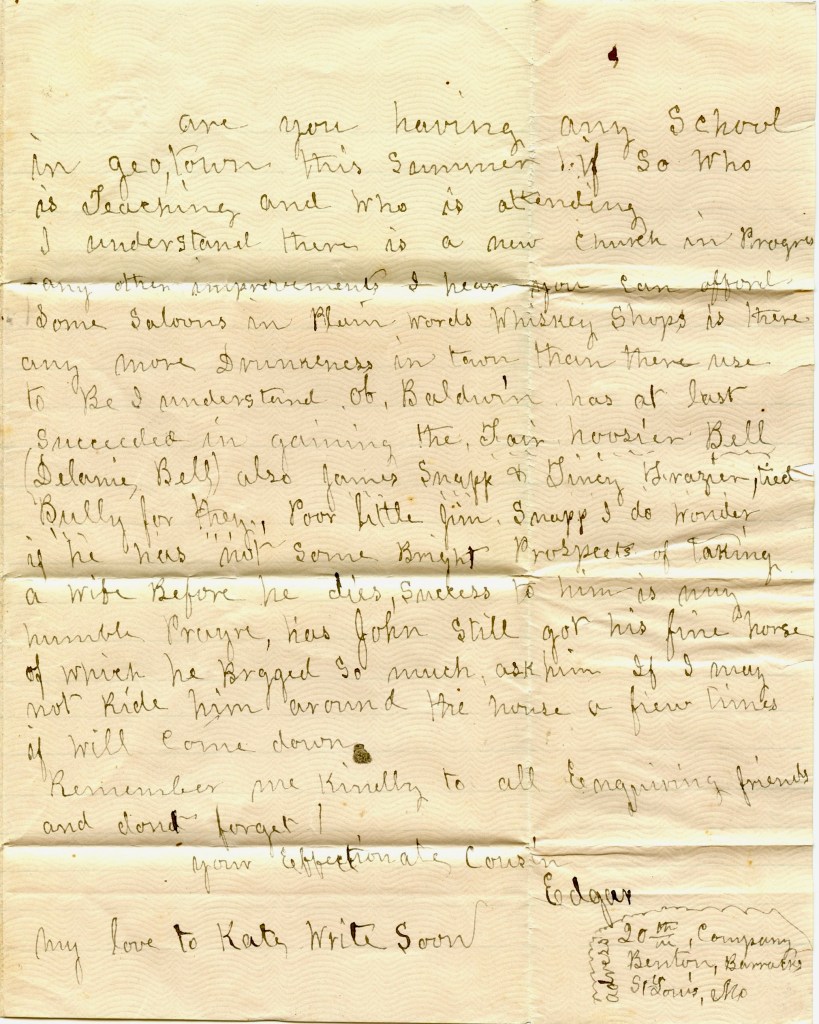 are you having any School
in geo,town this Summer ! if So Who
is Teaching and Who is attending
I understand there is a new Church in Progres
any other improvements I hear you Can afford
Some Saloons in Plain Words Whiskey Shops is there
any more Drunkeness in town than there use
to Be I understand Ob, Baldwin has at last
Succeeded in gaining the, Fair hoosier Bell
(Delanie, Bell) also James Snapp & Frazier, tied
Bully for they., Poor little Jim. Snapp I do Wonder
if he has not Some Bright Prospects of taking
a wife Before he dies, Success to him is my
humble Prayre, has John Still got his fine horse
of which he Brgged So much, ask him If I may
not Ride him around the house a few times
if Will Come down.
Remember me Kindly to all Enquiring friends
and dont forget !
your Effectionate, Cousin
Edgar
my love to Kate, Write Soon
adress 20th, Company
Benton, Barracks
St Louis, Mo